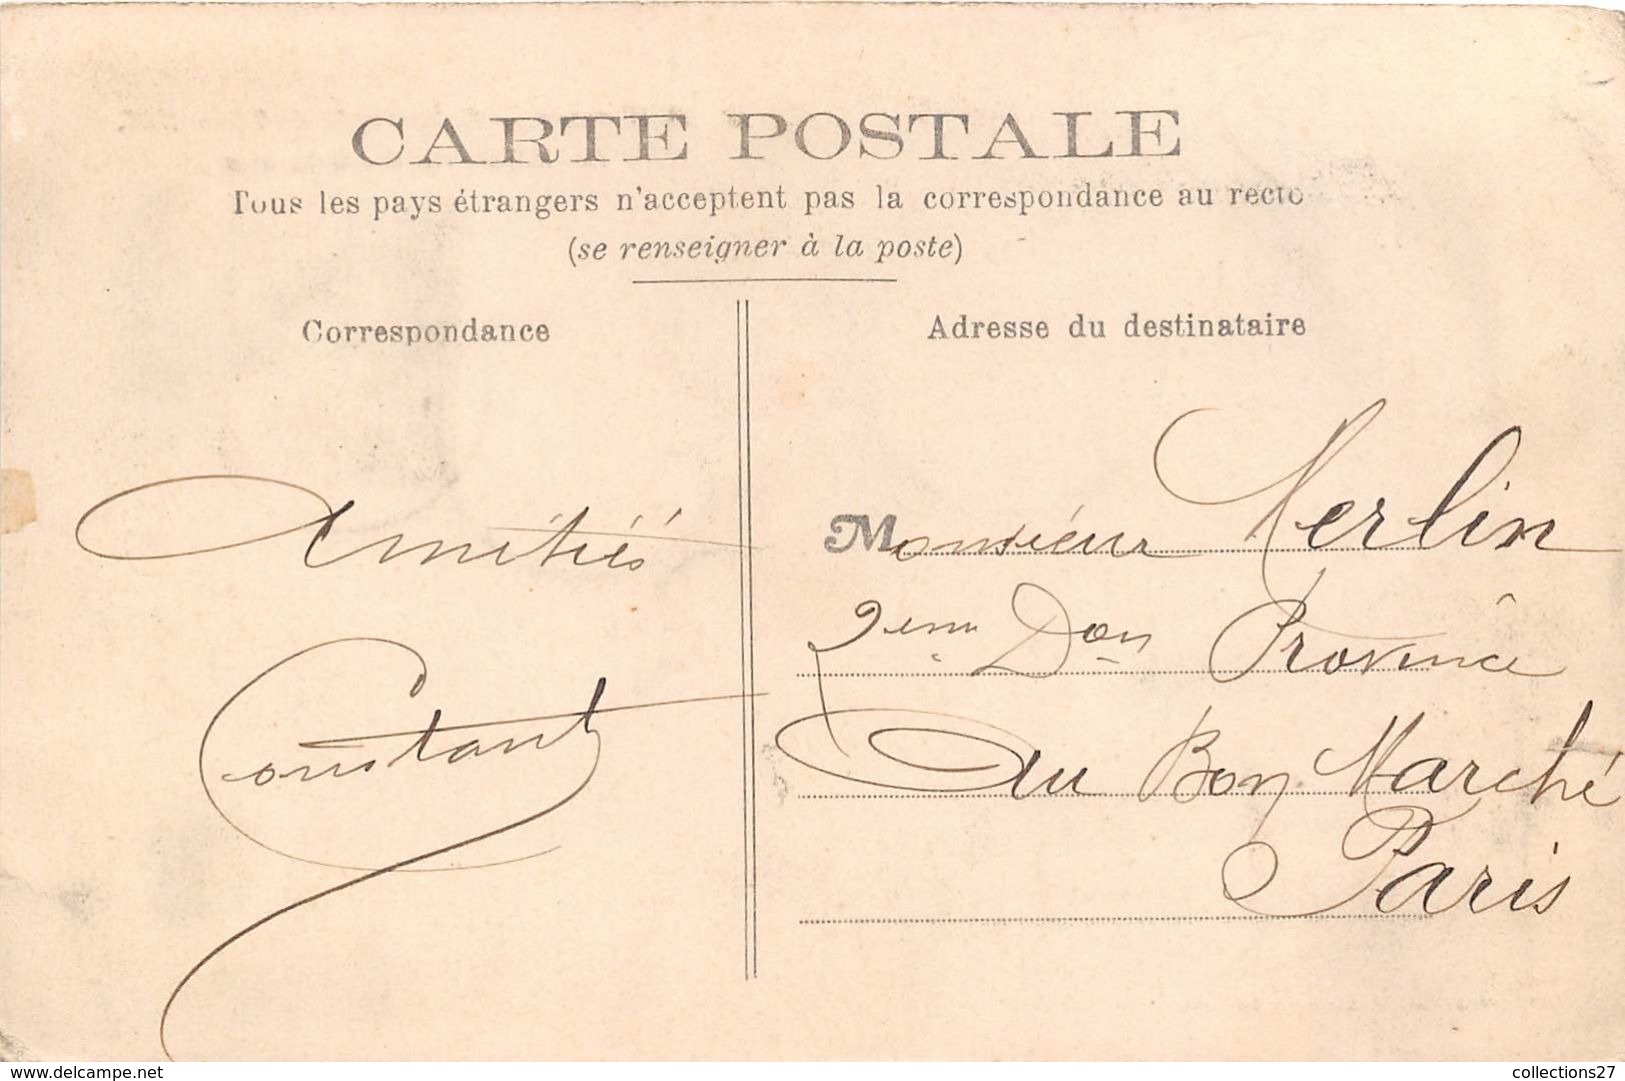 CARTE POSTALE
Tous les pays étrangers n'acceptent pas la correspondance au recto
(se renseigner à la poste)
Correspondance
Amitiés
Constant
Adresse du destinataire
Monsieur Merlin
2eme Don Province
Au Bon Marché
Paris
www.delcampe.net
collections27